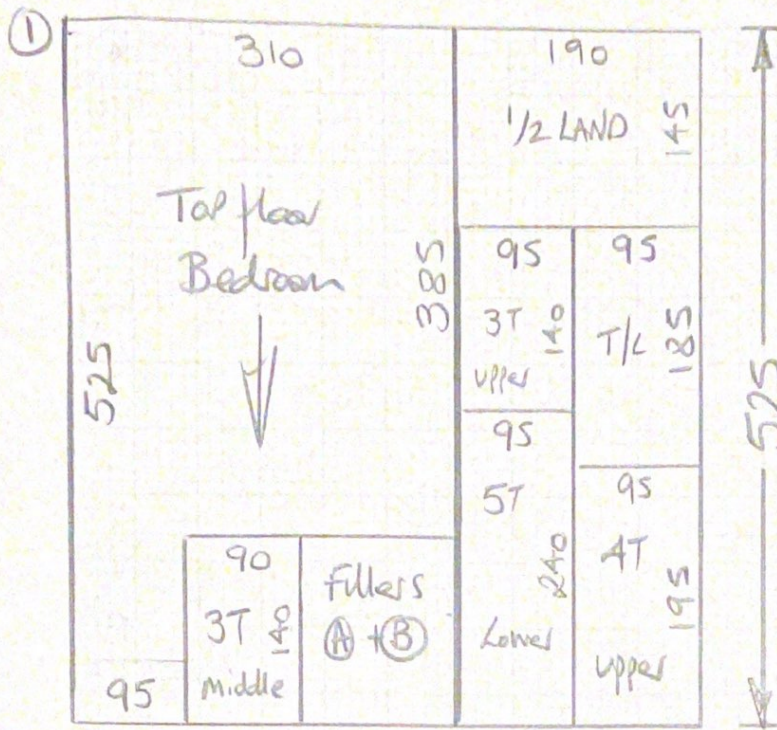 ①
310
190
1/2 LAND
145
Top floor
Bedroom
385
525
95
3T
140
upper
95
T/L
185
95
5T
240
Lower
95
4T
195
upper
90
3T
140
middle
Fillers
Ⓐ + Ⓑ
95
525